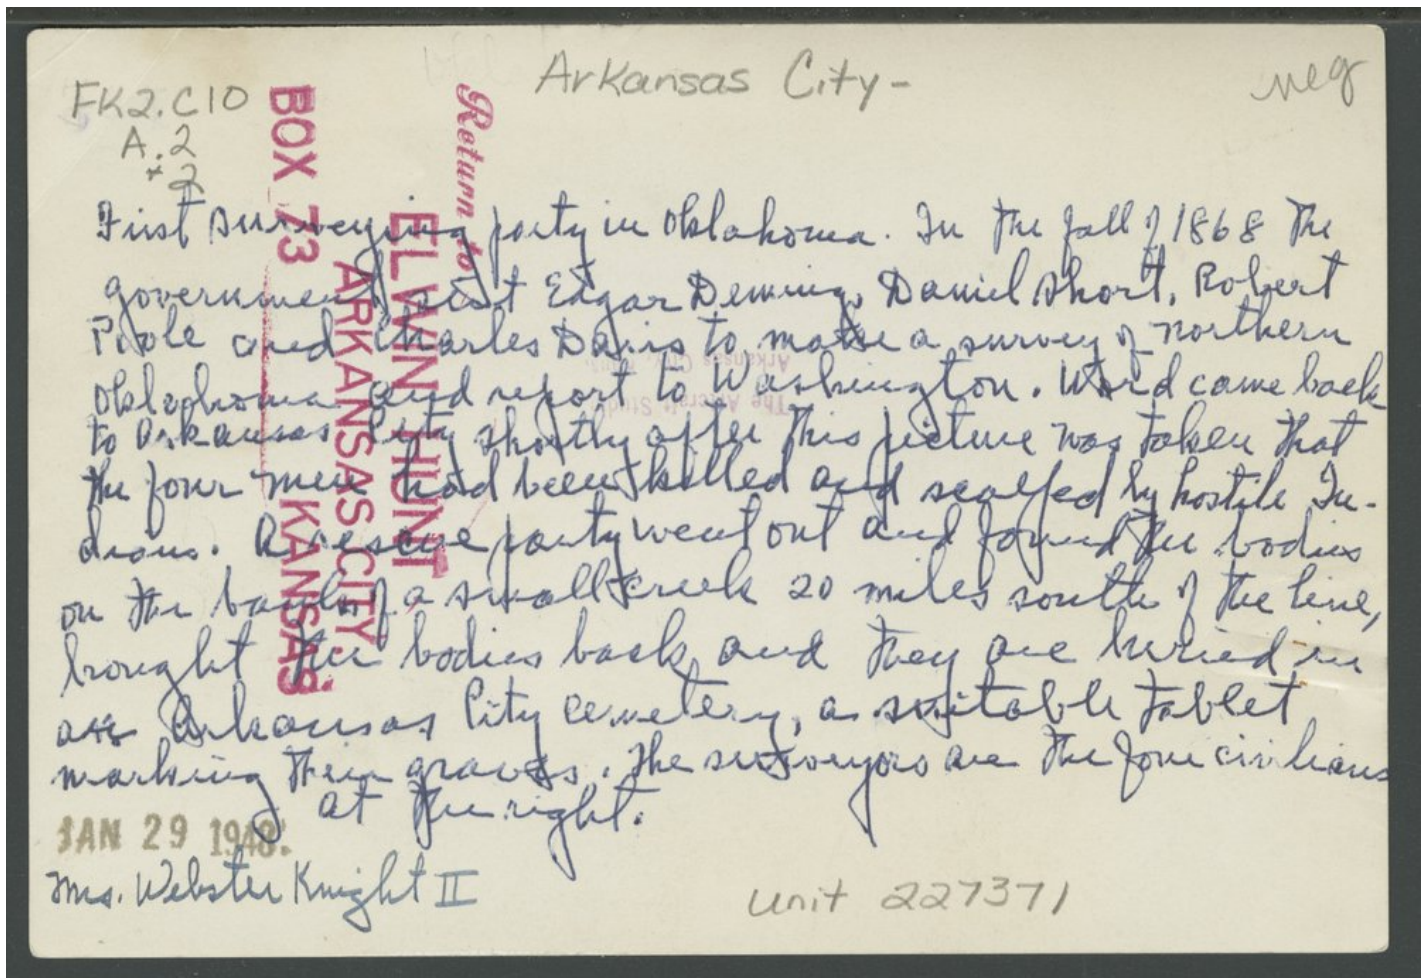 Arkansas City-
neg
FK2.C10
A.2
*2
First surveying party in Oklahoma. In the fall of 1868 the
government sent Edgar Deming, Daniel Short, Robert
Poole and Charles Davis to make a survey of northern
Oklahoma and report to Washington. Word came back
to Arkansas City shortly after this picture was taken that
the four men had been killed and scalped by hostile In-
dians. A rescue party went out and found the bodies
on the bank of a small creek 20 miles south of the line,
brought the bodies back and they are buried in
an Arkansas City cemetery, a suitable tablet
marking their graves. The surveyors are the four civilians
at the right.
JAN 29 1948.
Mrs. Webster Knight II
Unit 227371
Return to
ELWIN HUNT
ARKANSAS CITY,
BOX 73 KANSAS
The Artcraft Studio
Arkansas City,